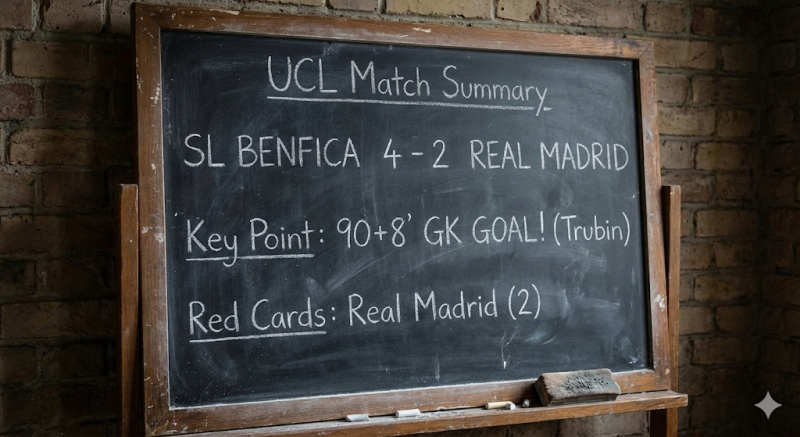 UCL Match Summary
SL BENFICA 4-2 REAL MADRID
Key Point: 90+8' GK GOAL! (Trubin)
Red Cards: Real Madrid (2)